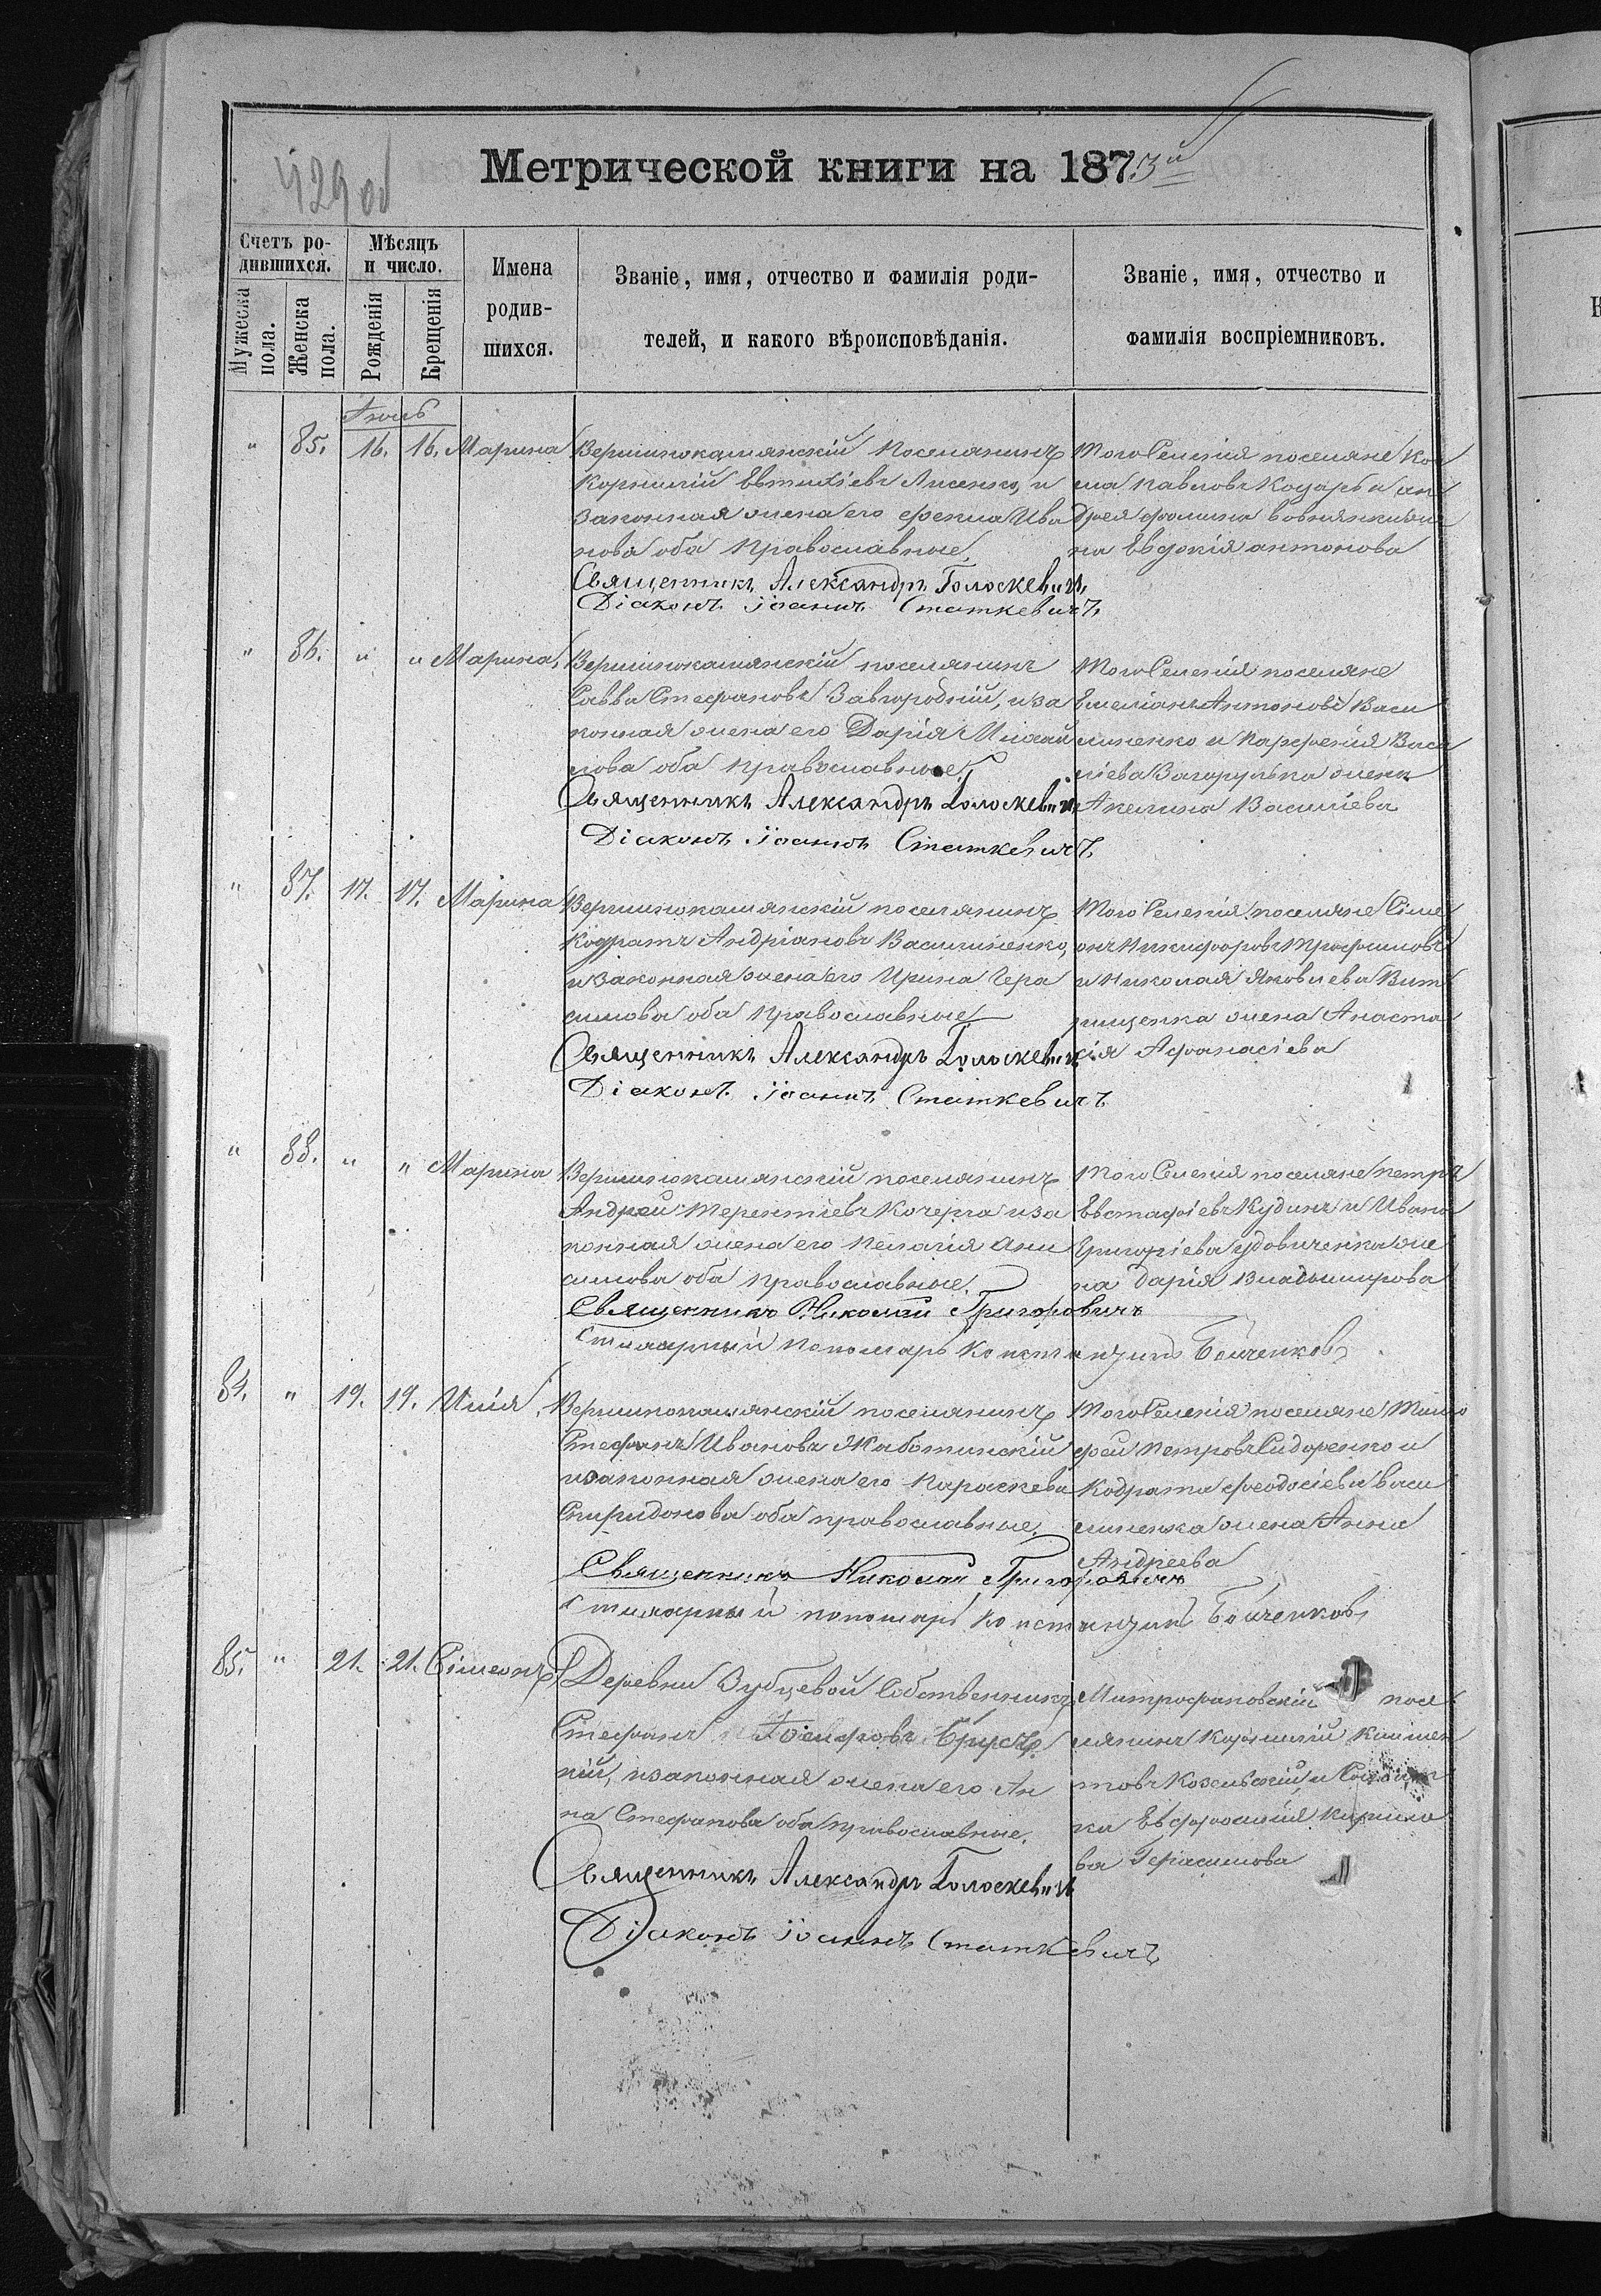 429 об
Метрической книги на 1873й
Счетъ ро-
дившихся.
Мѣсяцъ
и число.
Имена
родив-
шихся.
Званіе, имя, отчество и фамилія роди-
телей, и какого вѣроисповѣданія.
Званіе, имя, отчество и
фамилія воспріемниковъ.
Мужеска
пола.
Женска
пола.
Рожденія
Крещенія
" 85. 16. 16. Марина
Вершинокамянскій поселянинъ
Корнилій Евтихіевъ Лисенко, и
законная жена его Фекла Ива
нова оба православные
Священникъ Александръ Голоскевичъ
Діаконъ Іоаннъ Статкевичъ
Того Селенія поселяне Кос
ма Павловъ Коцарь и Ан
дрея Фомина же
на Евдокія Антонова
" 86. " " Марина
Вершинокамянскій поселянинъ
Савва Стефановъ Завгородній, и за
конная жена его Дарія Михай
лова оба православные
Священникъ Александръ Голоскевичъ
Діаконъ Іоаннъ Статкевичъ
Того Селенія поселяне
Емеліанъ Антоновъ Васи
линенко и Парфенія Васи
ліева Загорулька жена
Акелина Василіева
" 87. 17. 17. Марина
Вершинокамянскій поселянинъ
Кодратъ Андріановъ Василиненко,
и законная жена его Ирина Гера
симова оба православные
Священникъ Александръ Голоскевичъ
Діаконъ Іоаннъ Статкевичъ
Того Селенія поселяне Сіме
онъ Никифоровъ Трофимовъ
и Николая Яковлева
жена Анаста
сія Афанасіева
" 88. " " Марина
Вершинокамянскій поселянинъ
Андрей Терентіевъ Кочерга и за
конная жена его Пелагія Ани
симова оба православные
Священникъ Николай Григоровичъ
Стихарный пономарь Константинъ Бойченковъ
Того Селенія поселяне Петръ
Евстафіевъ Кудинъ и Ивана
Григоріева Удовиченка же
на Дарія Владимирова
84. " 19. 19. Илія.
Вершинокамянскій поселянинъ
Стефанъ Ивановъ Жаботинскій
и законная жена его Параскева
Спиридонова оба православные.
Священникъ Николай Григоровичъ
Стихарный пономарь Константинъ Бойченковъ
Того Селенія поселяне Тимо
фей Петровъ Сидоренко и
Кодрата Феодосіева Васи
линенка жена Анна
Андреева
85. " 21. 21. Сімеонъ
Деревни Зубцевой Собственникъ
Стефанъ
кій, и законная жена его Ан
на Стефанова оба православные.
Священникъ Александръ Голоскевичъ
Діаконъ Іоаннъ Статкевичъ
Митрофановскій посе
лянинъ Корнилій Климен
товъ Козельскій, и
ка Евфросинія Кирило
ва Герасимова